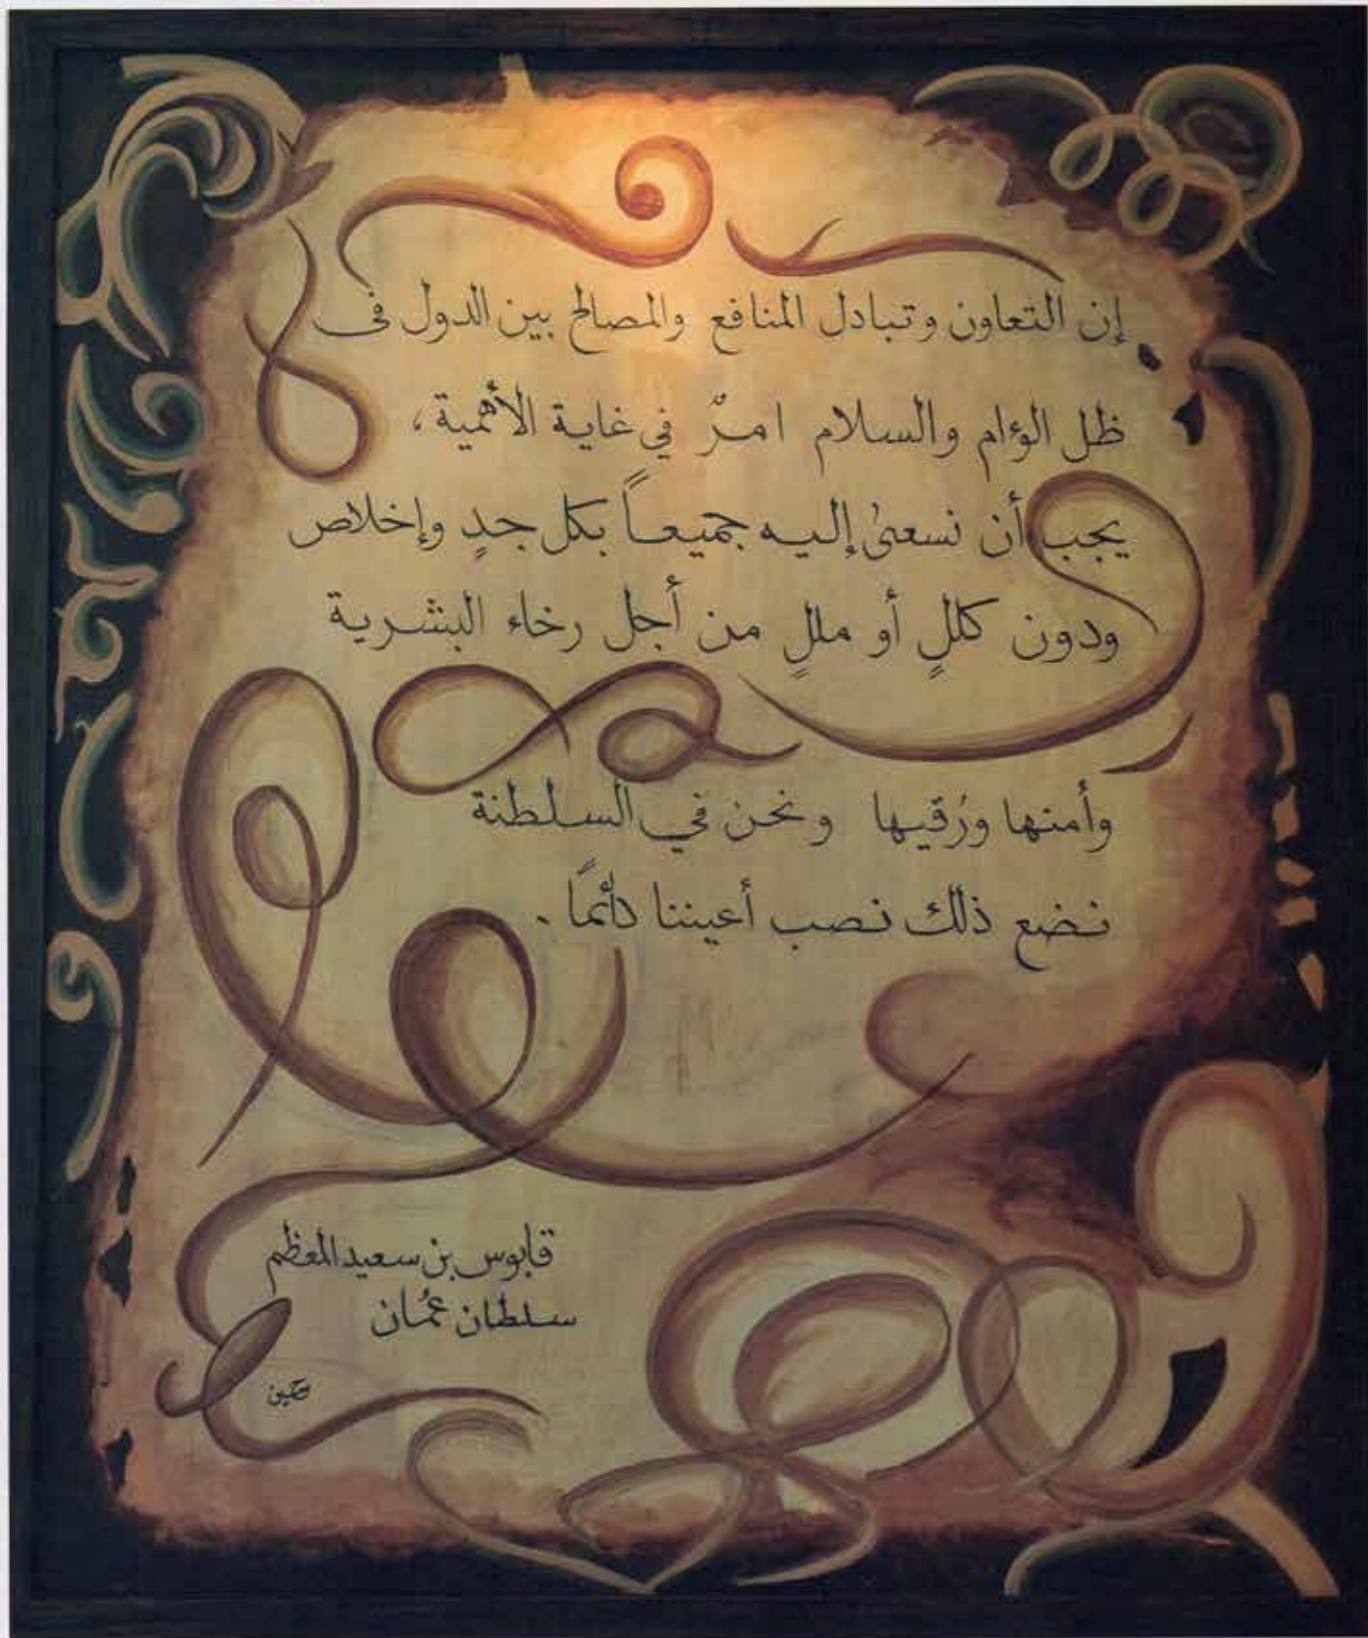 إن التعاون وتبادل المنافع والمصالح بين الدول في
ظل الوءام والسلام امرٌ في غاية الأهمية،
يجب أن نسعىٰ إليه جميعاً بكل جدٍ وإخلاص
ودون كللٍ أو مللٍ من أجل رخاء البشرية
وأمنها ورُقيها ونحن في السلطنة
نضع ذلك نصب أعيننا دائماً .
قابوس بن سعيد المعظم
سلطان عُمان